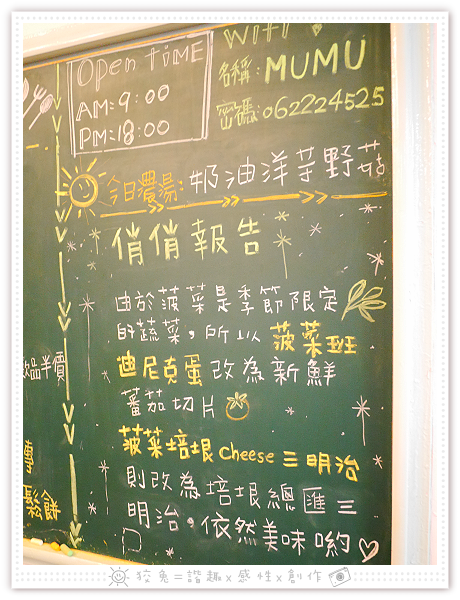 Open TIME
AM:9:00
PM:18:00
WiFi
名稱:MUMU
密碼:062224525
今日濃湯:奶油洋芋野菇
俏俏報告
由於菠菜是季節限定
的蔬菜,所以菠菜班
迪尼克蛋改為新鮮
蕃茄切片
菠菜培根cheese三明治
則改為培根總匯三
明治,依然美味喲
品半價
鬆餅
狡兔=諧趣x感性x創作